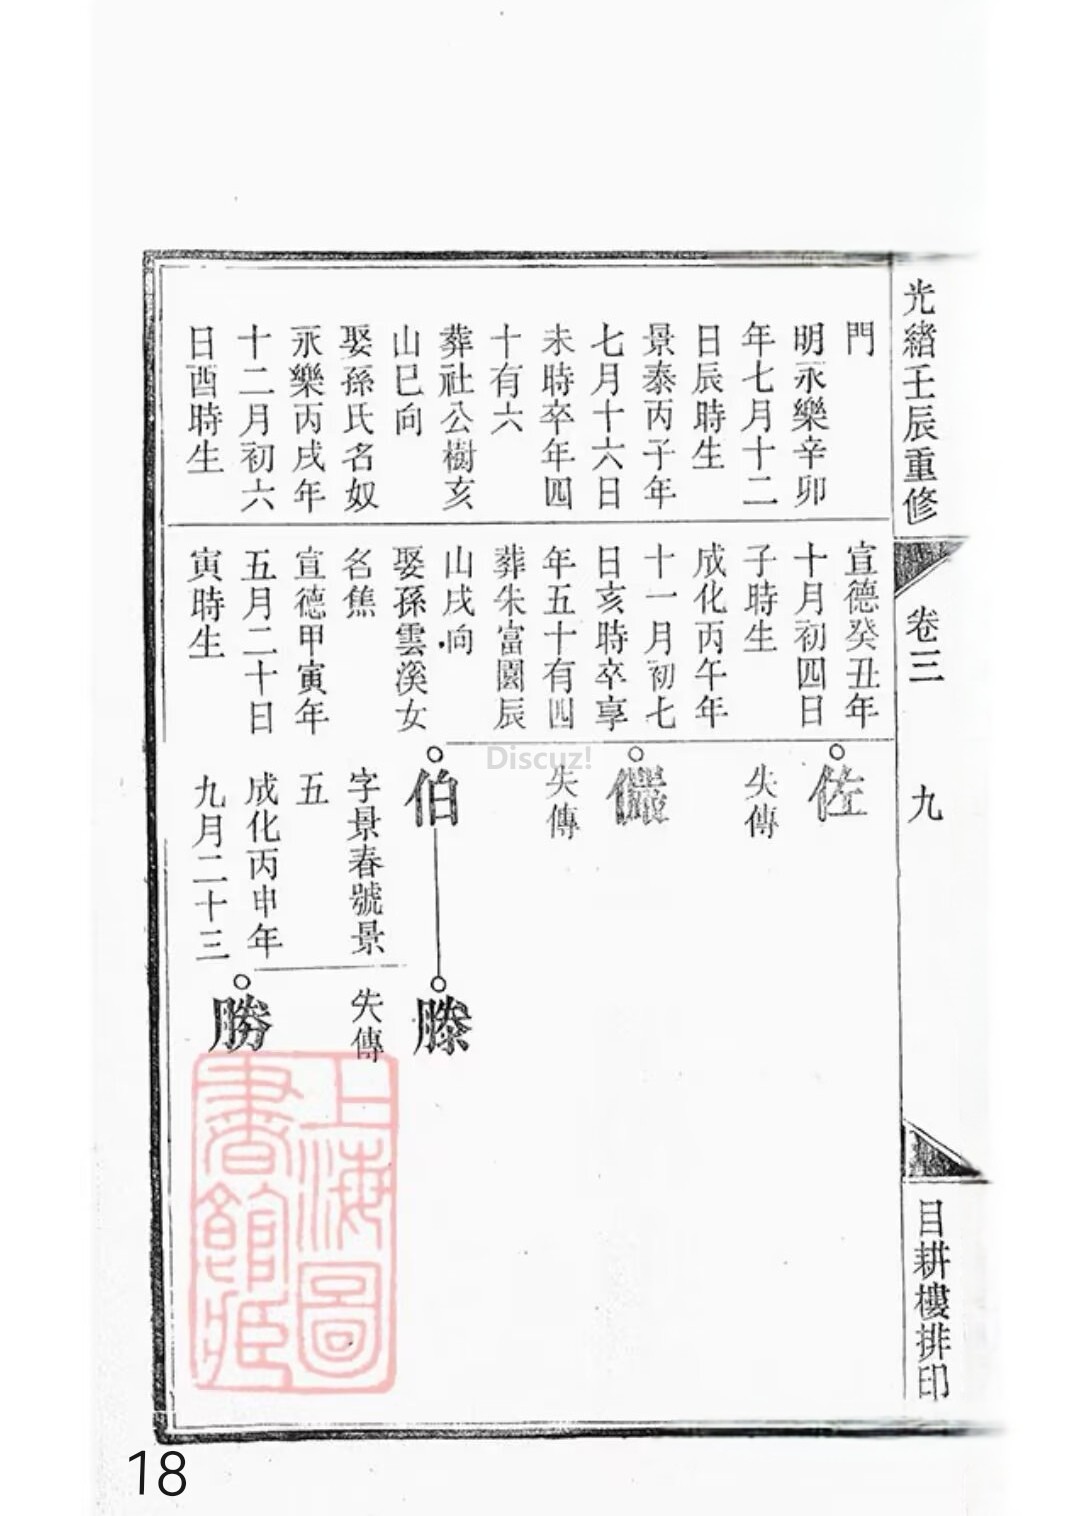 光緖壬辰重修
卷三
九
目耕樓排印
門
明永樂辛卯
年七月十二
日辰時生
景泰丙子年
七月十六日
未時卒年四
十有六
葬社公樹亥
山巳向
娶孫氏名奴
永樂丙戌年
十二月初六
日酉時生
宣德癸丑年
十月初四日
子時生
成化丙午年
十一月初七
日亥時卒享
年五十有四
葬朱富園辰
山戌向
娶孫雲溪女
名焦
宣德甲寅年
五月二十日
寅時生
佐
失傳
儼
失傳
伯
字景春號景
五
成化丙申年
九月二十三
滕
失傳
勝
上海圖
書館藏
Discuz!
18